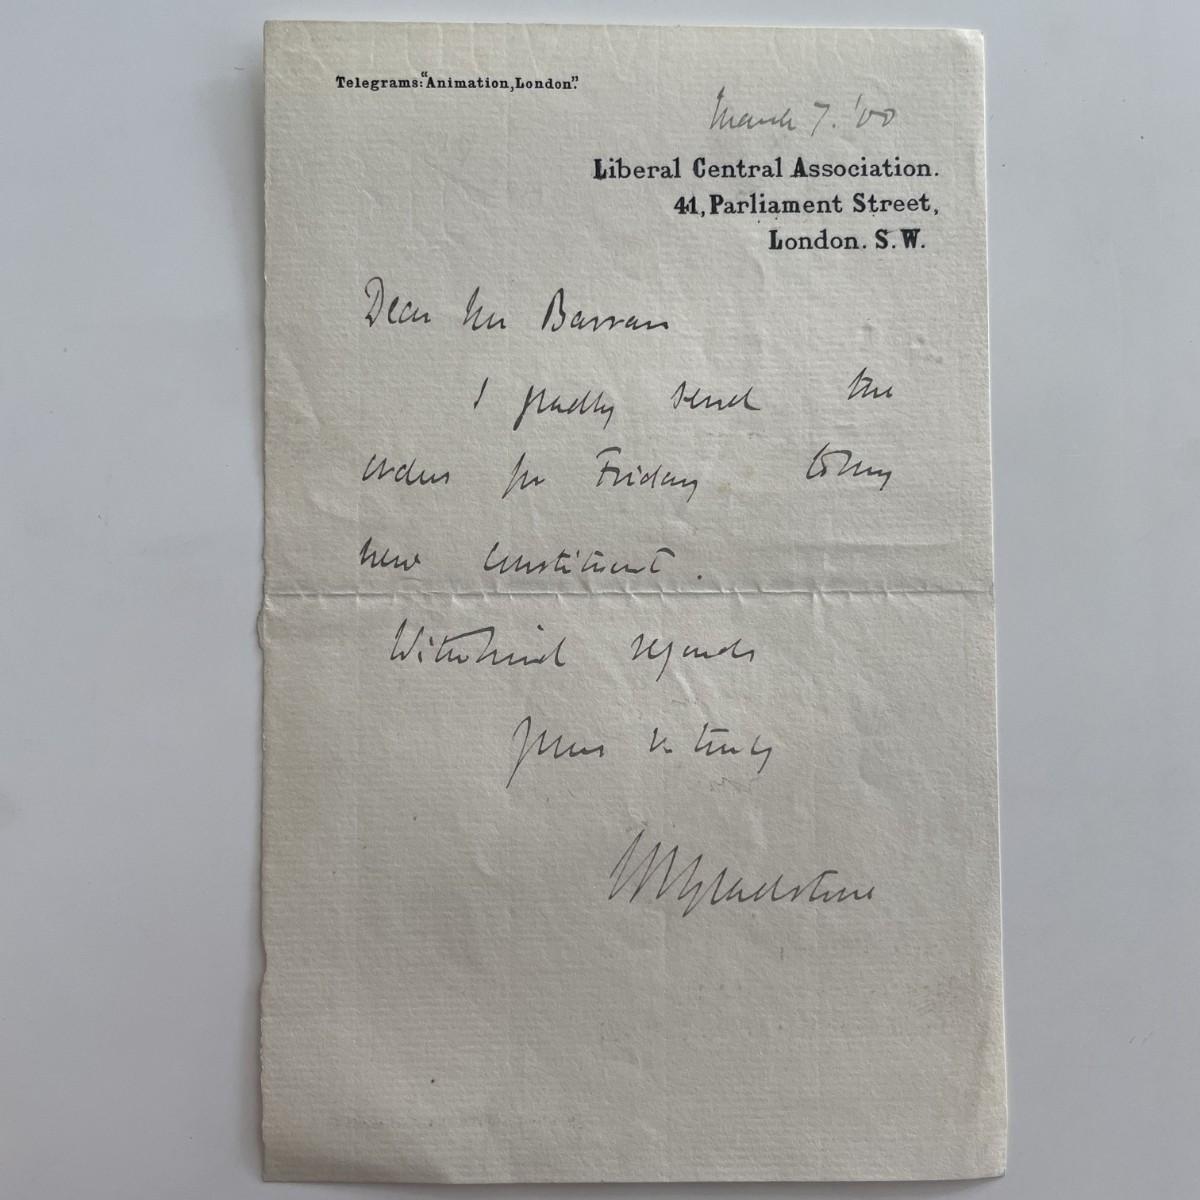 Telegrams: "Animation, London."
March 7. '00
Liberal Central Association.
41, Parliament Street,
London. S.W.
Dear Mr Barran
I gladly send the
orders for Friday to my
new constituent.
With kind regards
Yours v. truly
Gladstone